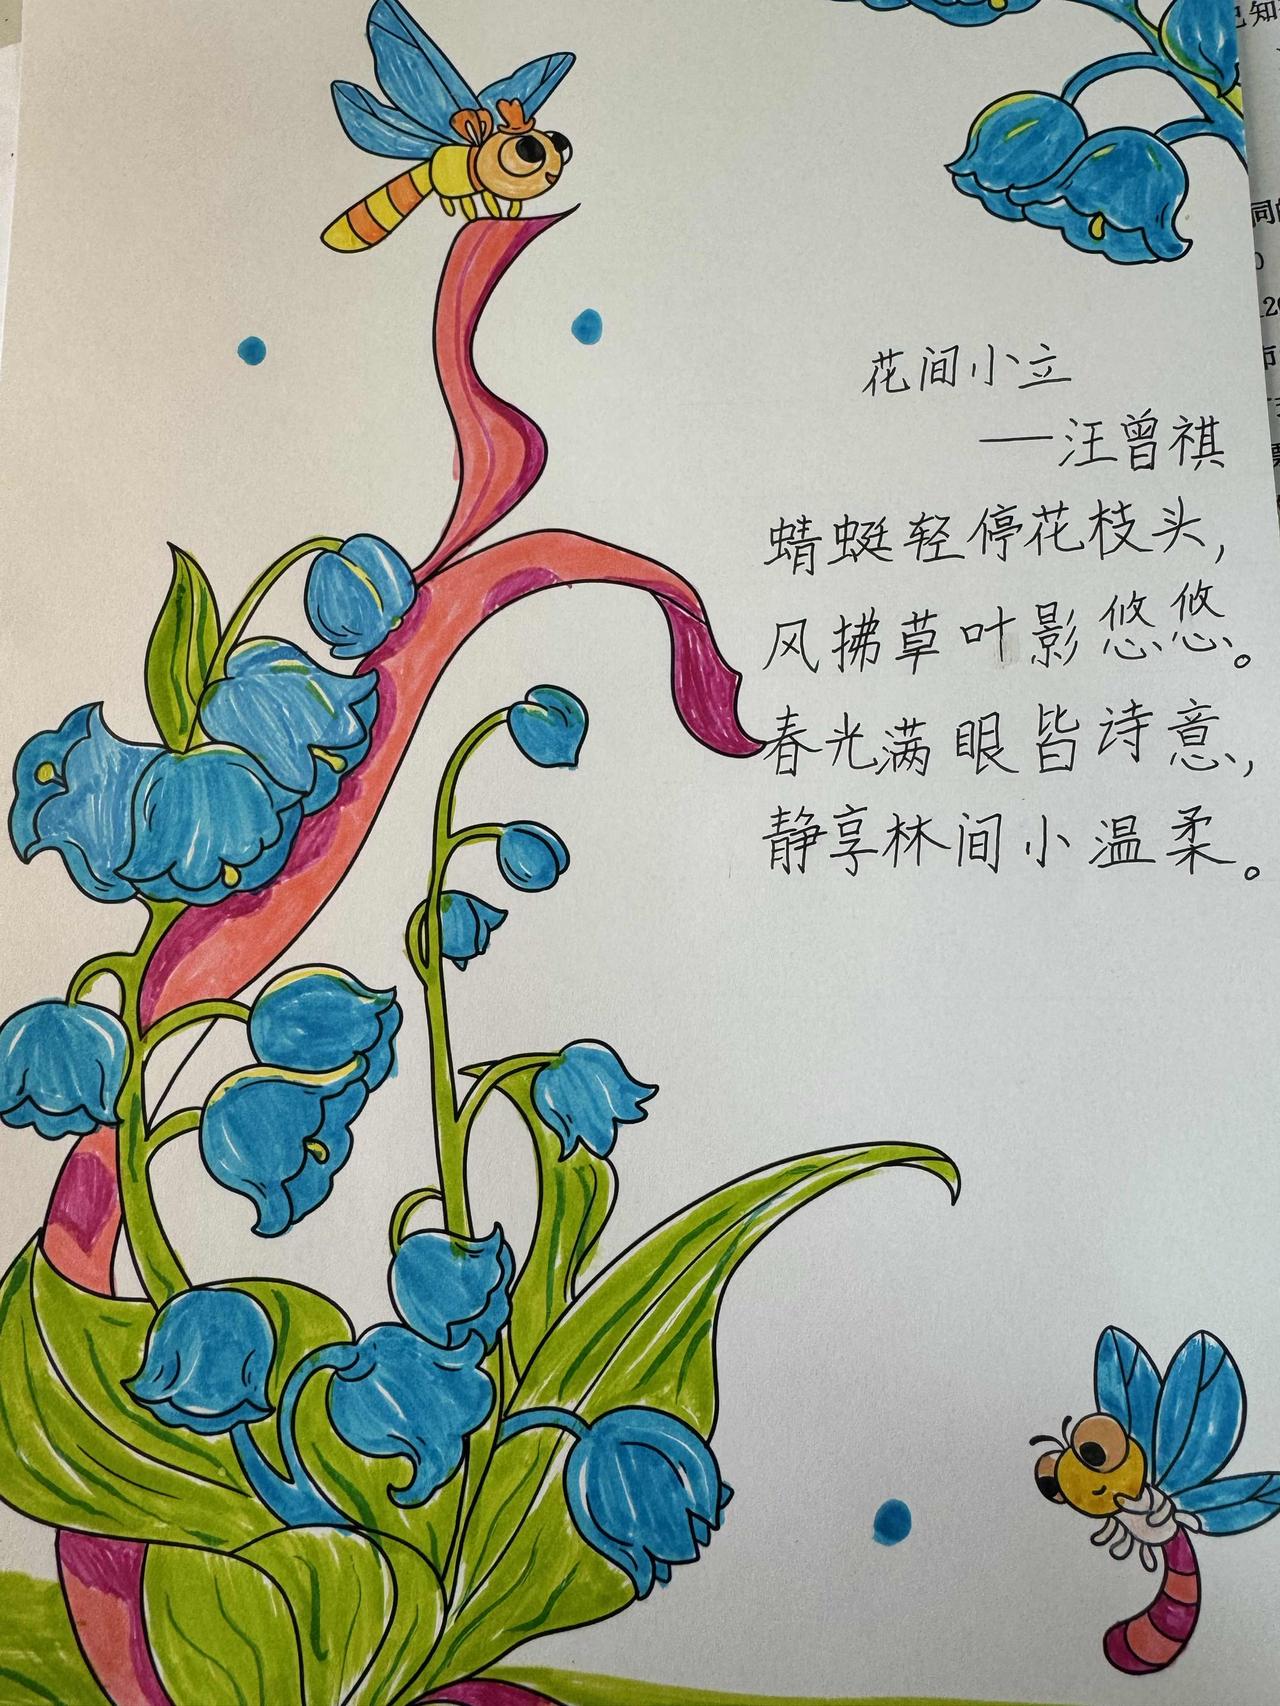 花间小立
——汪曾祺
蜻蜓轻停花枝头，
风拂草叶影悠悠。
春光满眼皆诗意，
静享林间小温柔。